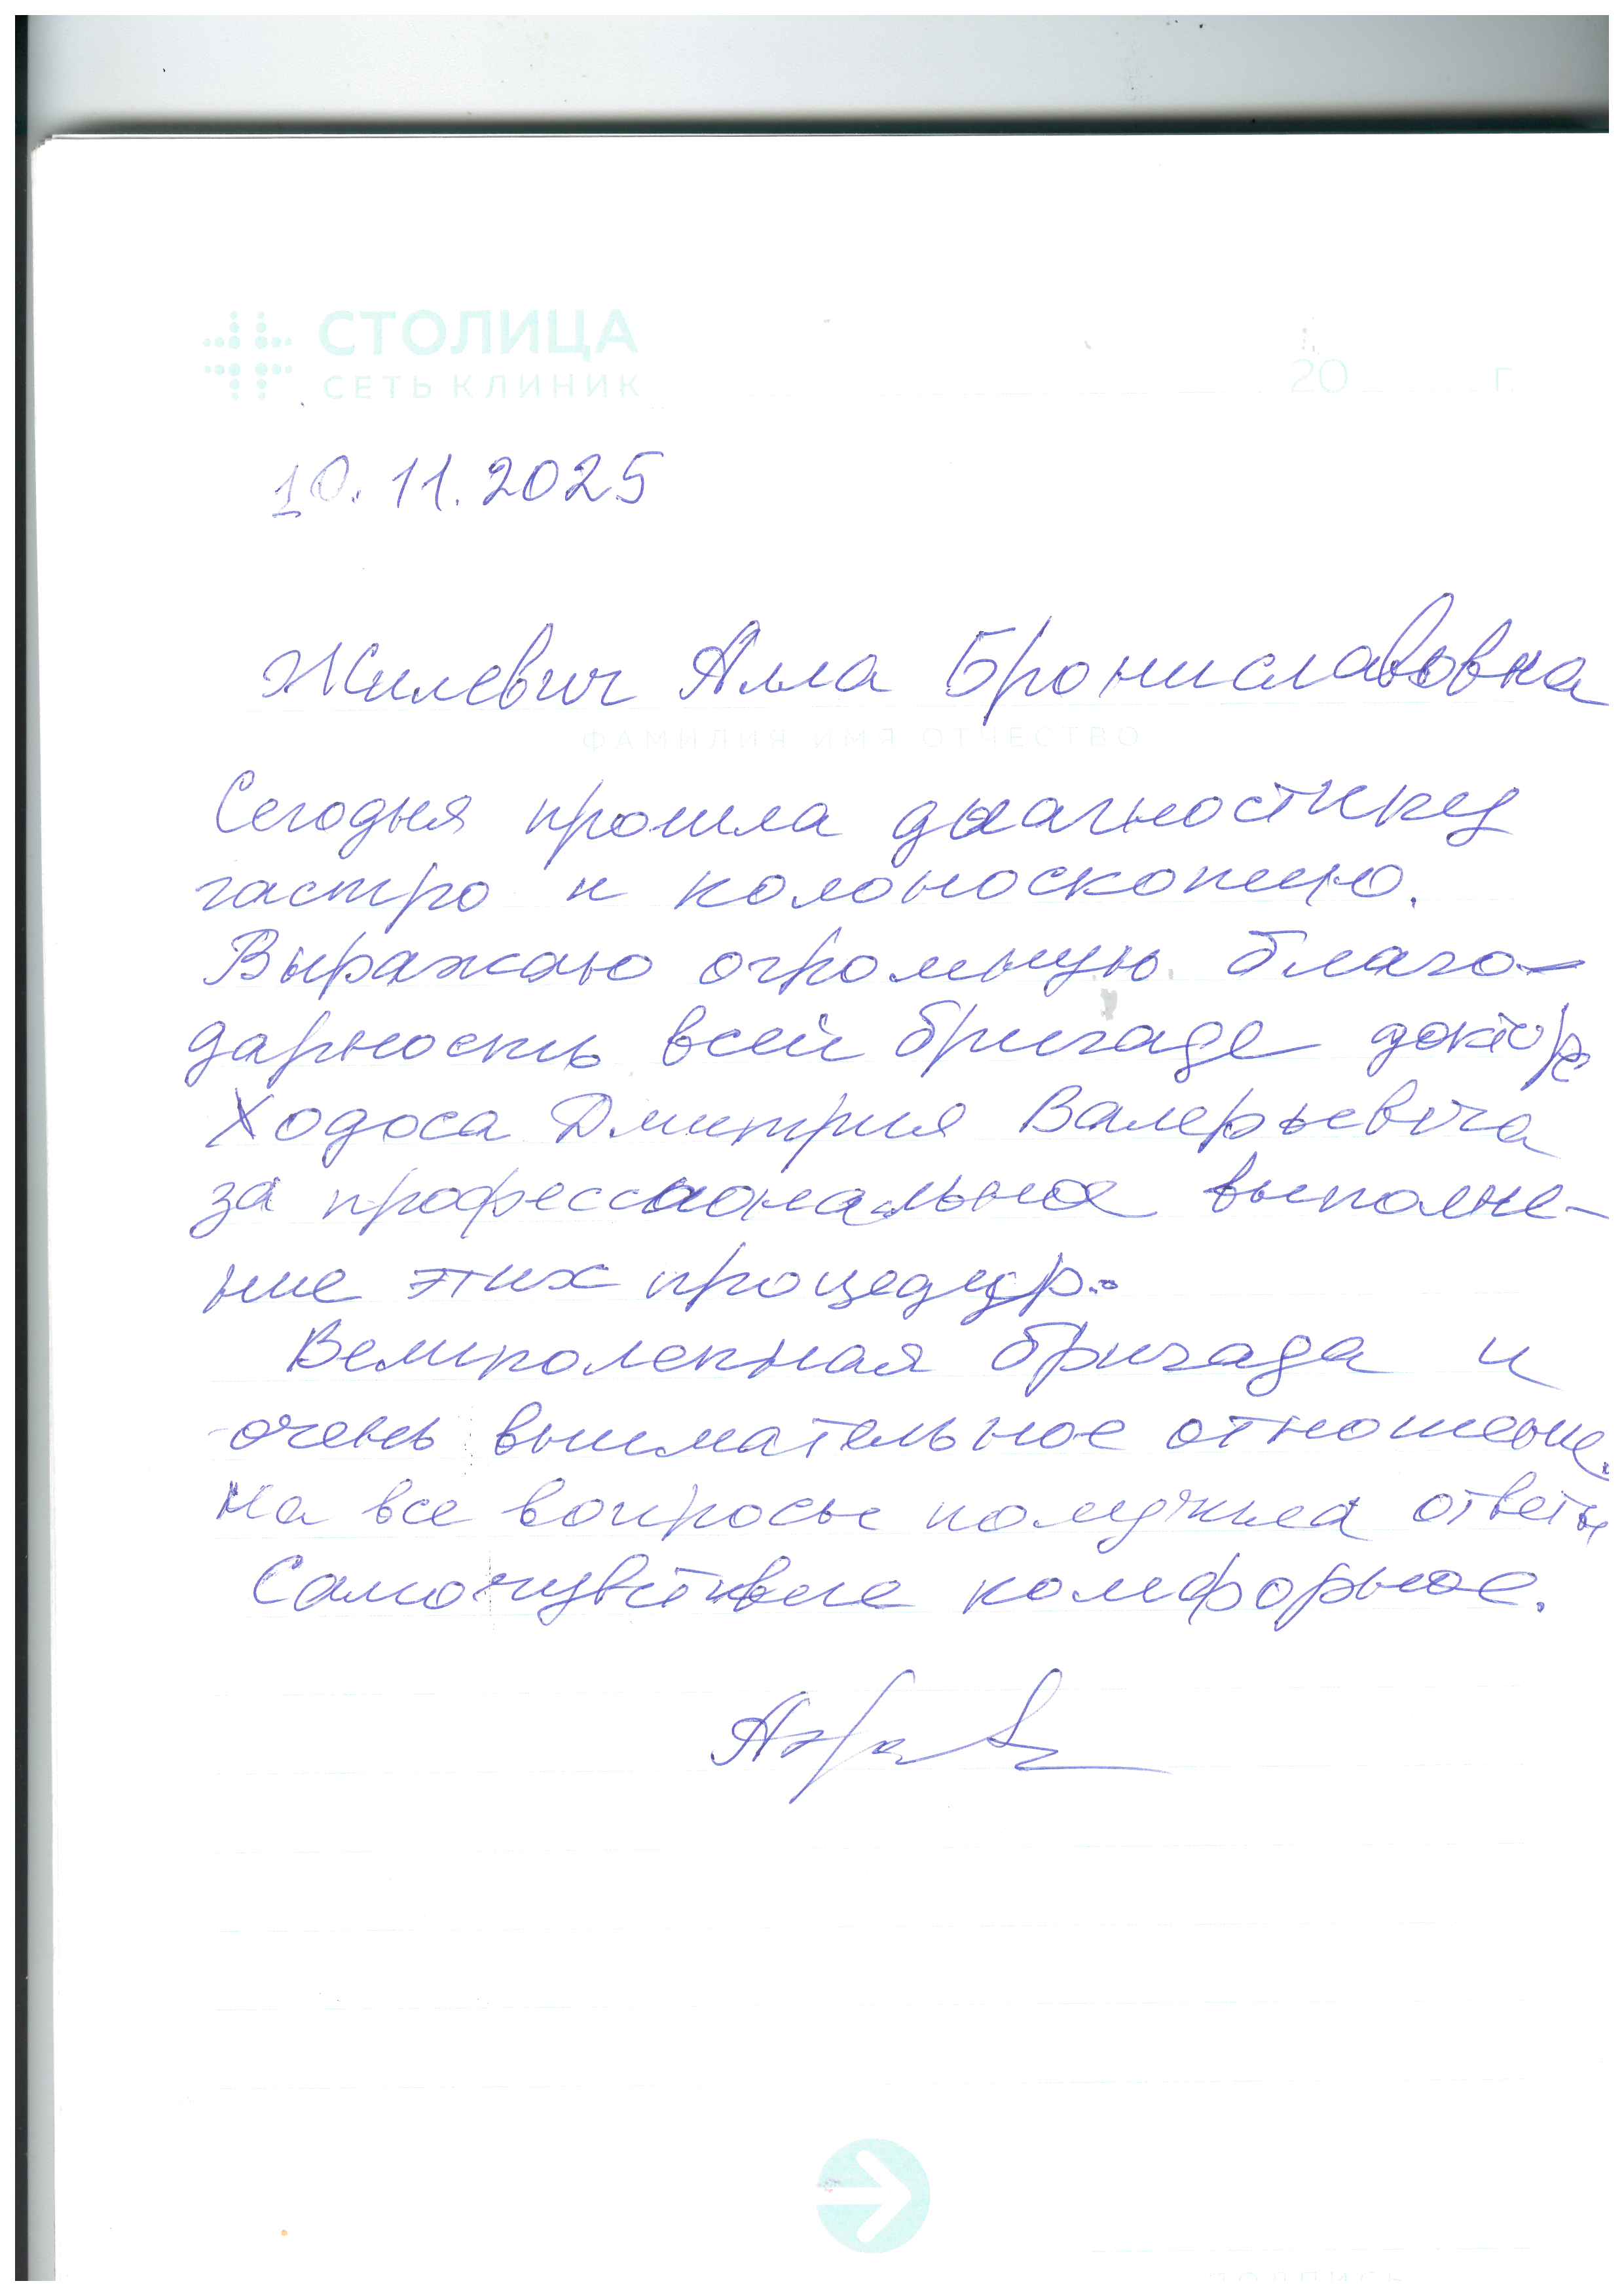 СТОЛИЦА
СЕТЬ КЛИНИК
20 г.
10.11.2025
Жилевич Алла Брониславовна
ФАМИЛИЯ ИМЯ ОТЧЕСТВО
Сегодня прошла диагностику
гастро и колоноскопию.
Выражаю огромную благо-
дарность всей бригаде доктора
Ходоса Дмитрия Валерьевича
за профессиональное выполне-
ние этих процедур.
Великолепная бригада и
очень внимательное отношение.
На все вопросы получила ответы
Самочувствие комфорное.
ПОДПИСЬ